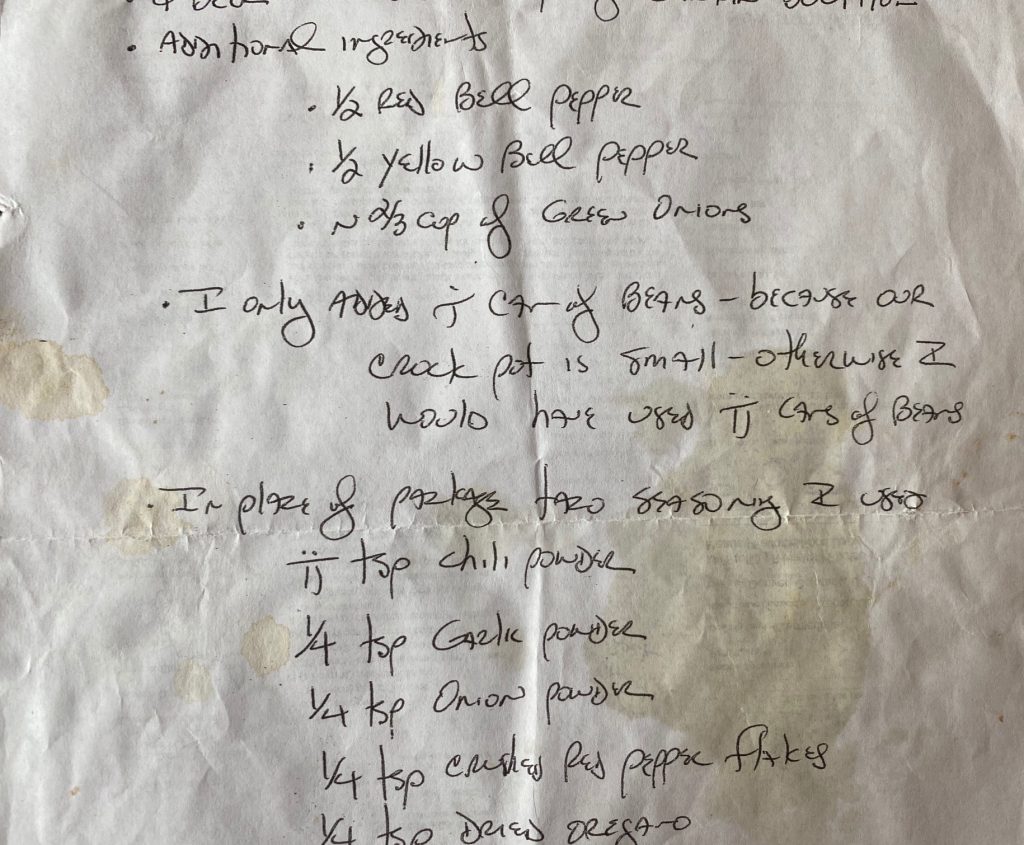 • Additional ingredients
• 1/2 Red Bell pepper
• 1/2 yellow Bell pepper
• ~ 2/3 cup of Green Onions
• I only added i̅ can of Beans - because our
crock pot is small - otherwise I
would have used i̅i̅ cans of Beans
• In place of package taco seasoning I used
i̅i̅ tsp chili powder
1/4 tsp Garlic powder
1/4 tsp Onion powder
1/4 tsp crushed Red pepper flakes
1/4 tsp Dried oregano